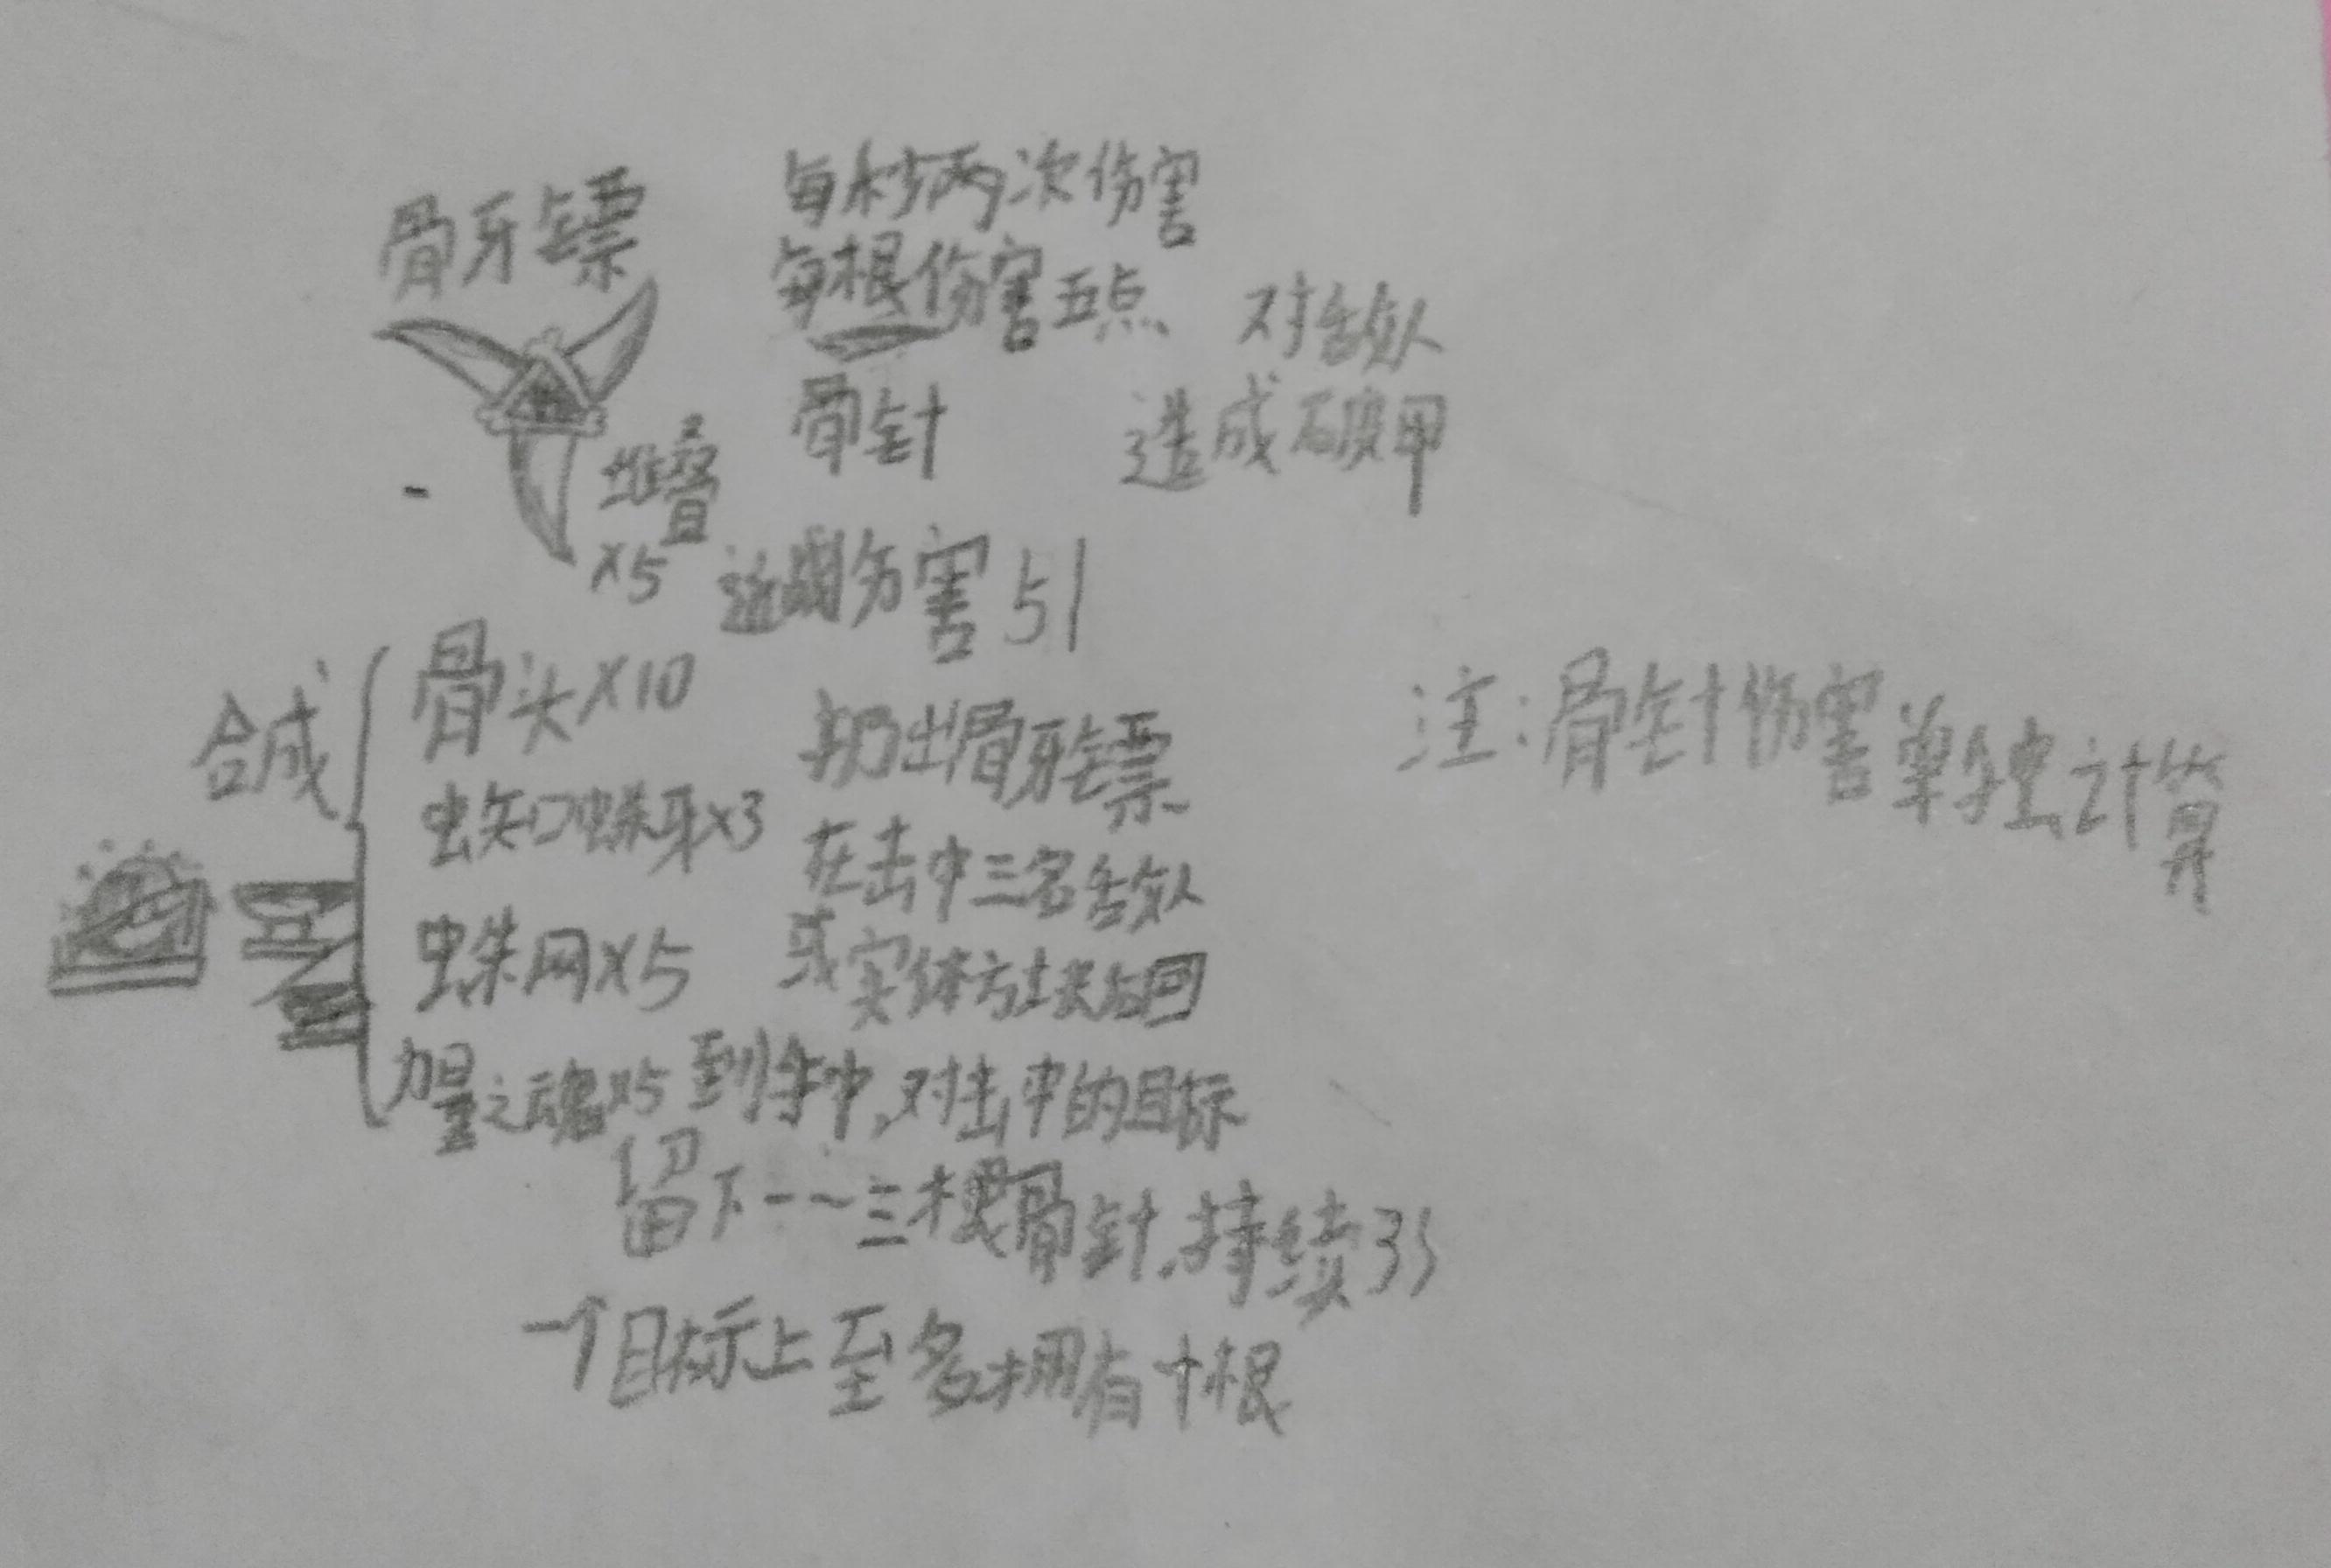 骨牙镖
堆叠
×5
每秒两次伤害
每根伤害五点
骨针
对敌人
造成破甲
近战伤害51
合成
骨头×10
蜘蛛牙×3
蛛网×5
力量之魂×5
扔出骨牙镖
在击中三名敌人
或实体方块后回
到手中,对击中的目标
留下一~三根骨针.持续3s
一个目标上至多拥有十根
注:骨针伤害单独计算